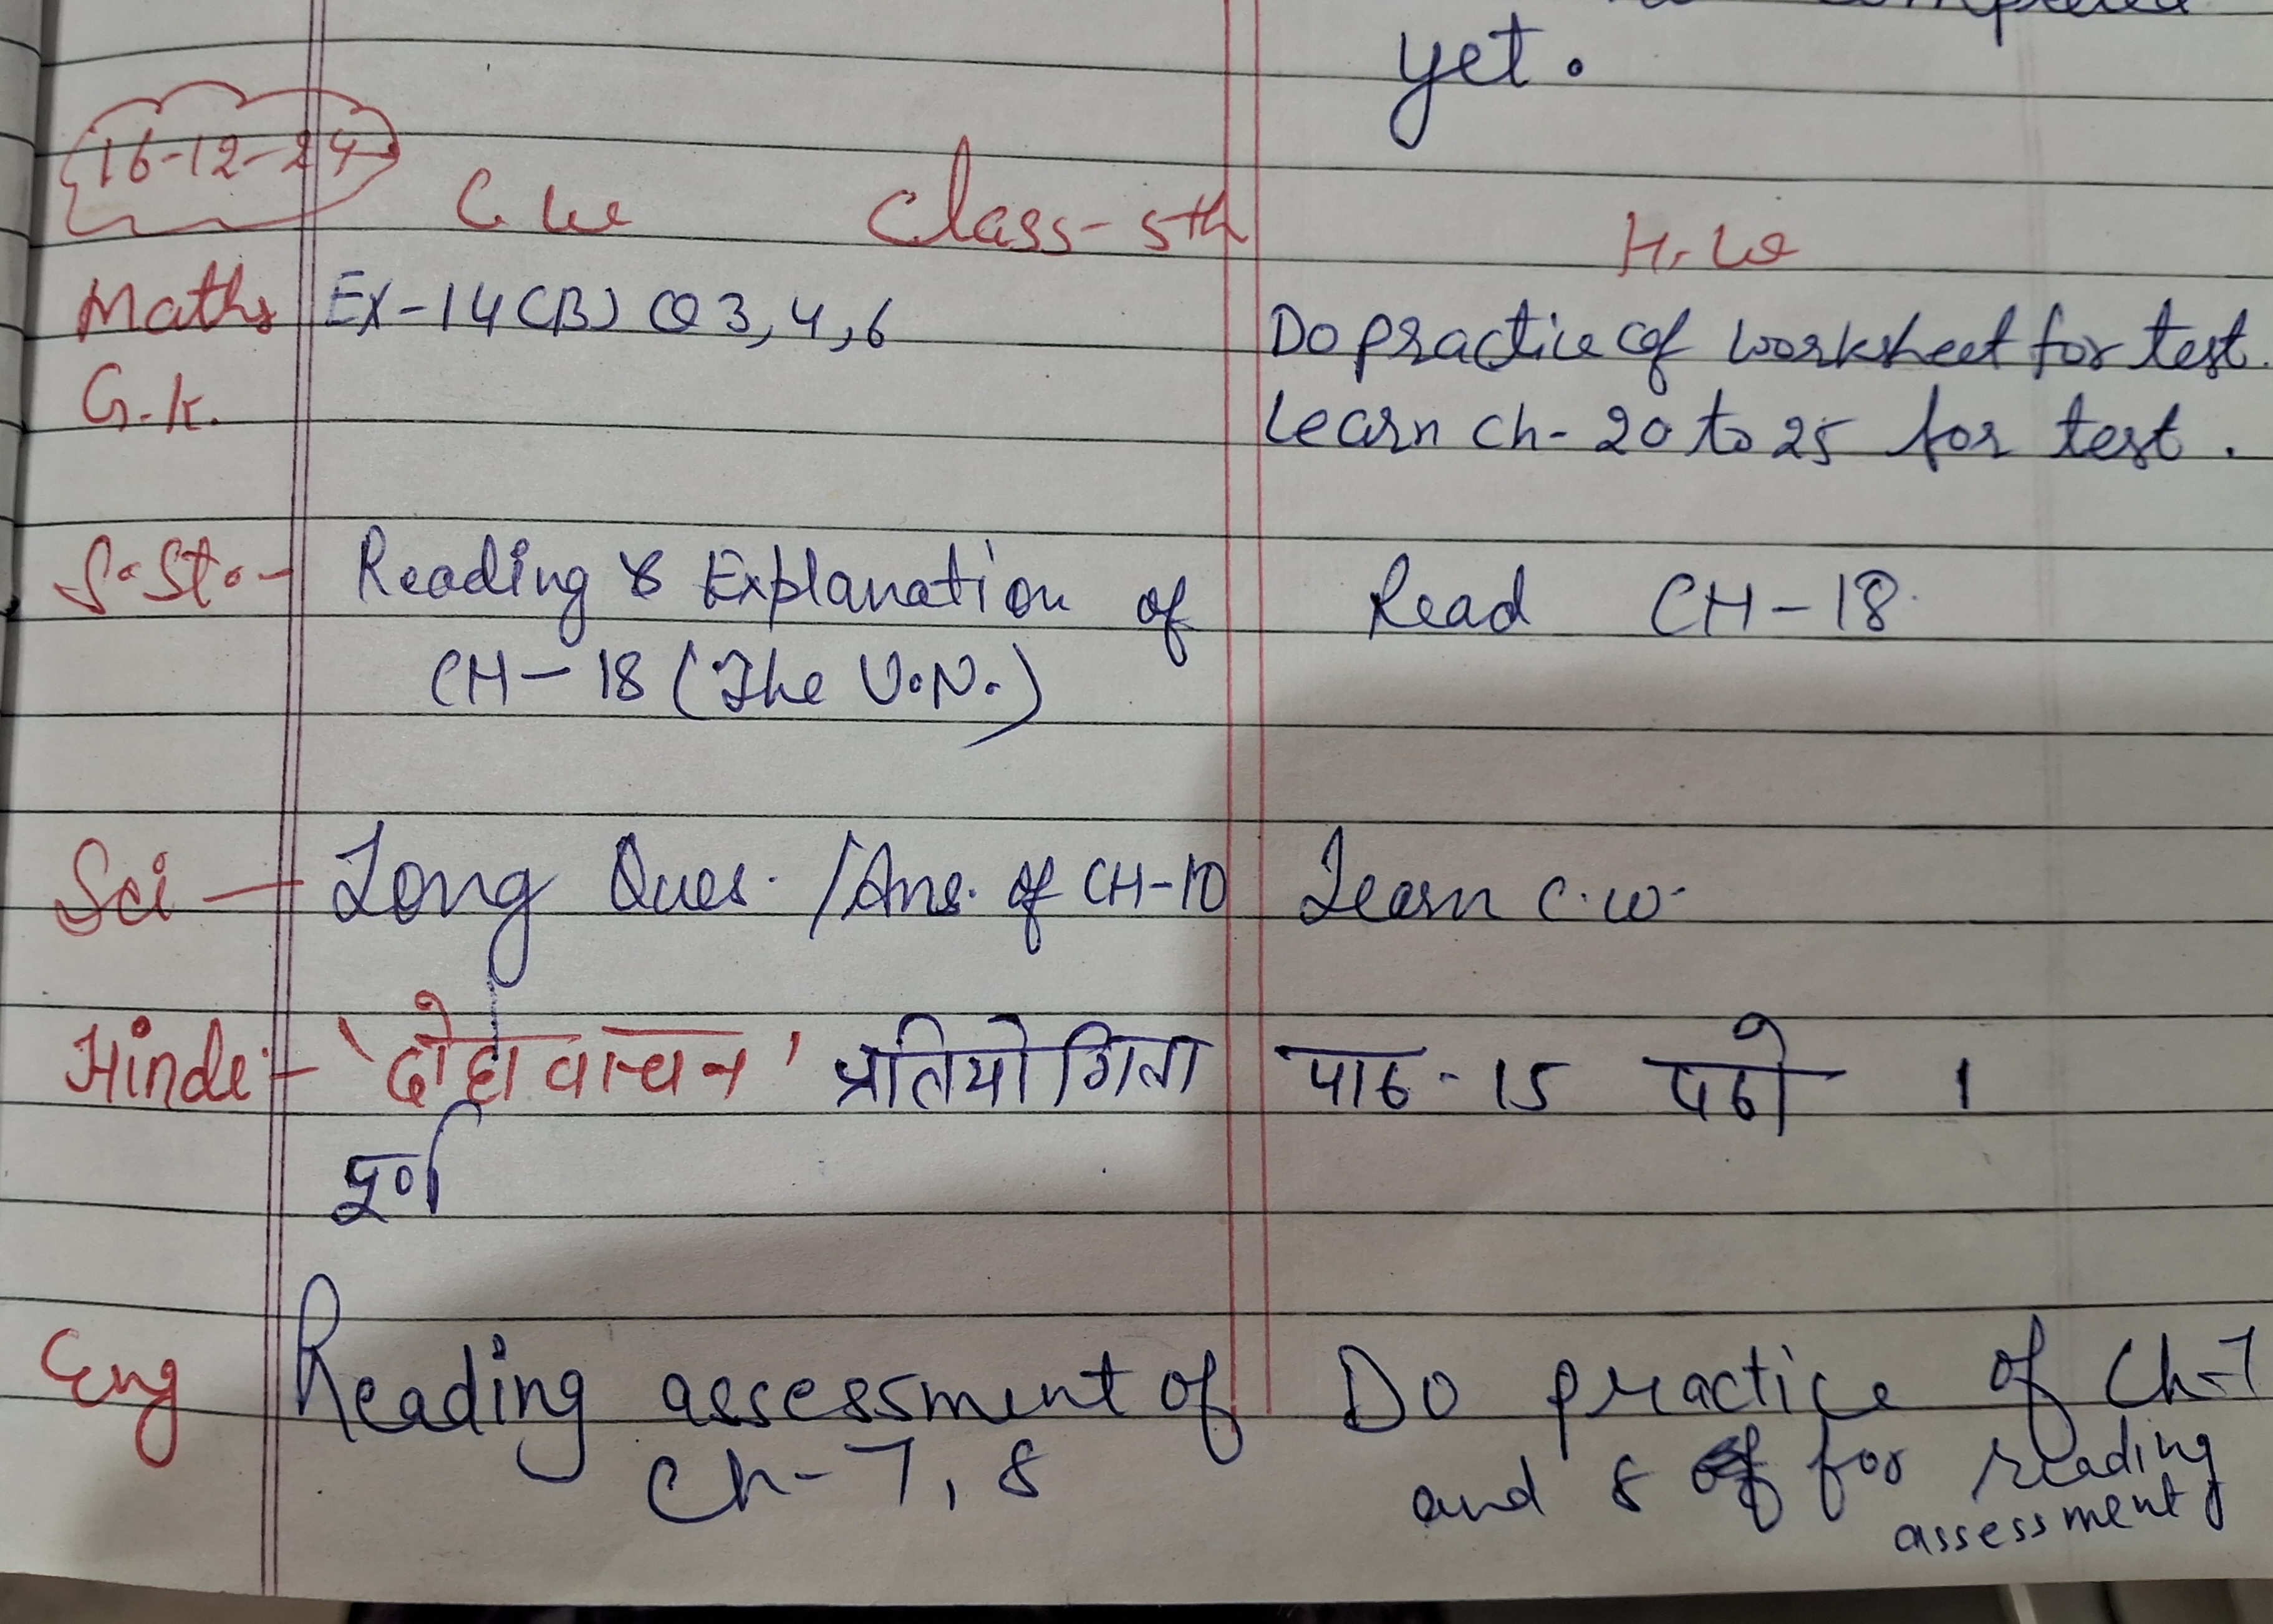 completed
yet.
16-12-24
C.W Class-5th H.W
Maths Ex-14(B) Q3,4,6 Do practice of worksheet for test.
G.K. Learn Ch-20 to 25 for test.
S.St.- Reading & Explanation of Read CH-18.
CH-18 (The U.N.)
Sci- Long Ques. / Ans. of CH-10 Learn c.w.
Hindi- 'दोहा वाचन' प्रतियोगिता पाठ-15 पढो ।
पूर्ण
Eng Reading assessment of Do practice of Ch-7
Ch-7, 8 and 8 for reading
assessment